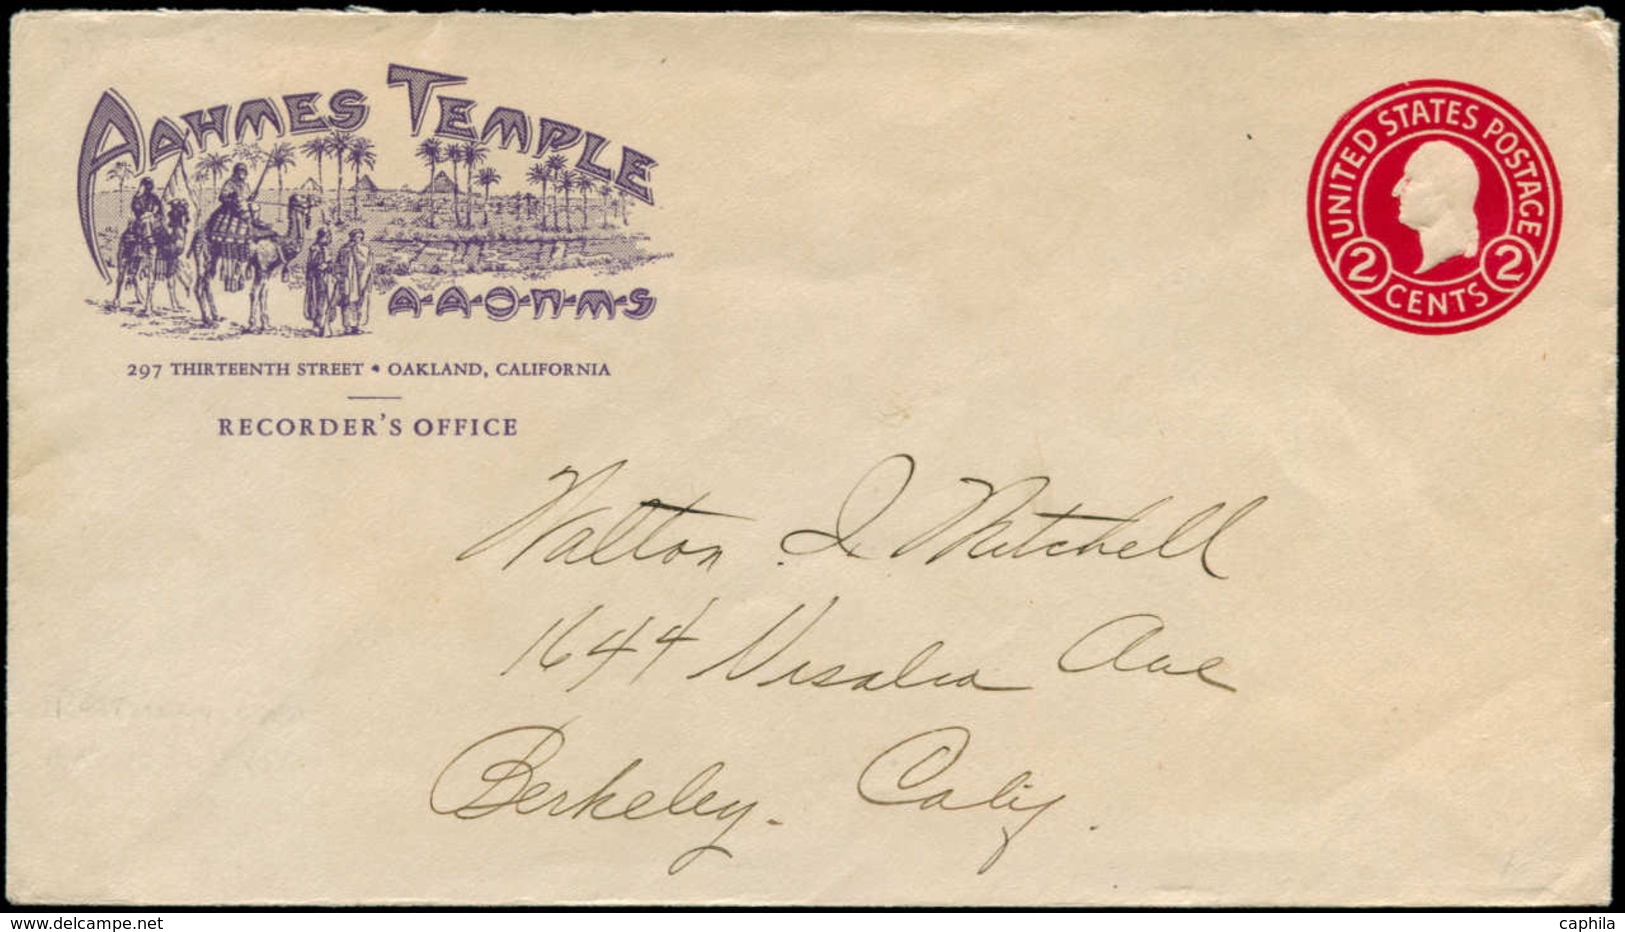 AAHMES TEMPLE
A-A-O-N-M-S
297 THIRTEENTH STREET • OAKLAND, CALIFORNIA
RECORDER'S OFFICE
UNITED STATES POSTAGE
2 CENTS 2
Walton J. Mitchell
1644 Visalia Ave
Berkeley. Calif.
www.delcampe.net
caphila